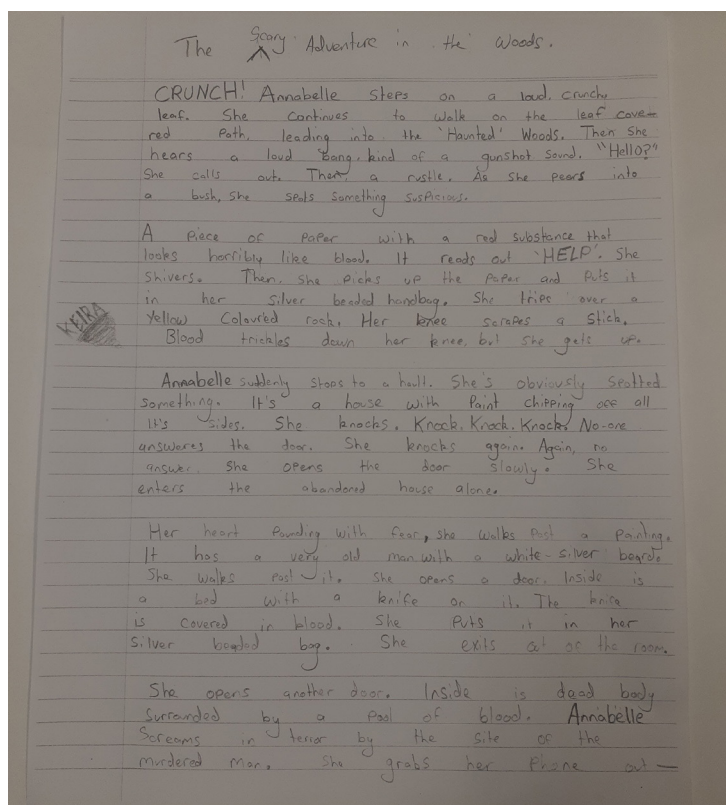 The Scary Adventure in the Woods.
CRUNCH! Annabelle steps on a loud, crunchy
leaf. She continues to walk on the leaf cove-
red path, leading into the 'Haunted' Woods. Then she
hears a loud bang, kind of a gunshot sound. "Hello?"
She calls out. Then, a rustle. As she peers into
a bush, she spots something suspicious.
A piece of paper with a red substance that
looks horribly like blood. It reads out 'HELP'. She
shivers. Then, she picks up the paper and puts it
in her silver beaded handbag. She trips over a
KEIRA
yellow coloured rock. Her knee scrapes a stick.
Blood trickles down her knee, but she gets up.
Annabelle suddenly stops to a hault. She's obviously spotted
something. It's a house with paint chipping off all
it's sides. She knocks. Knock. Knock. Knock. No-one
answeres the door. She knocks again. Again, no
answer. She opens the door slowly. She
enters the abandoned house alone.
Her heart pounding with fear, she walks past a painting.
It has a very old man with a white-silver beard.
She walks past it. She opens a door. Inside is
a bed with a knife on it. The knife
is covered in blood. She puts it in her
silver beaded bag. She exits out of the room.
She opens another door. Inside is dead body
surrounded by a pool of blood. Annabelle
screams in terror by the site of the
murdered man. She grabs her phone out —